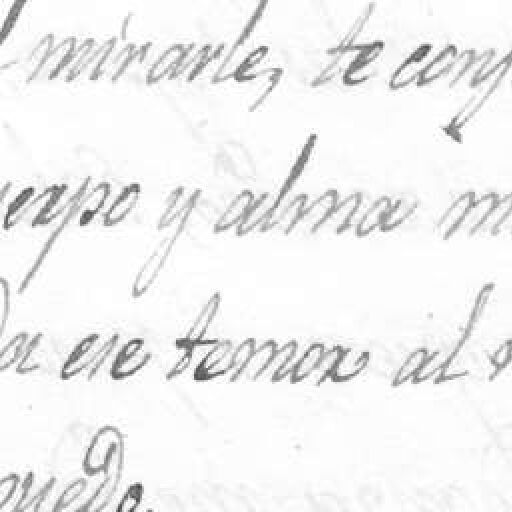 mirarle, te conf
uerpo y alma m
da ese temor al
puedo.